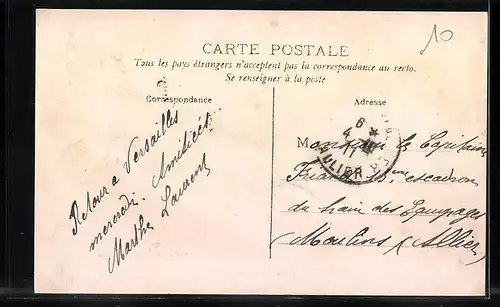 10
CARTE POSTALE
Tous les pays étrangers n'acceptent pas la correspondance au recto.
Se renseigner à la poste
Correspondance
Adresse
Retour a Versailles
mercredi. Amitiés
Marthe Laurent
Monsieur le Capitaine
escadron
du train des Equipages
Moulins (Allier)